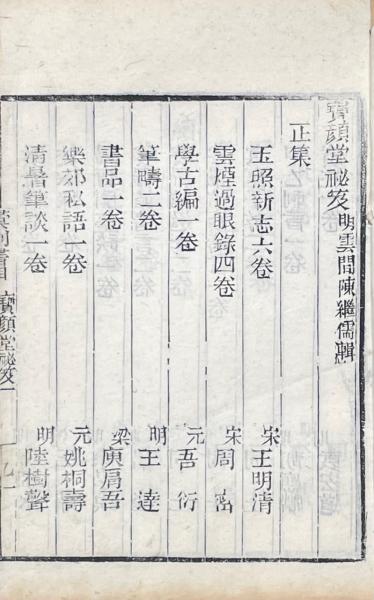 寶顏堂祕笈 明雲間陳繼儒輯
正集
玉照新志六卷 宋王明清
雲煙過眼錄四卷 宋周密
學古編一卷 元吾衍
筆疇二卷 明王達
書品一卷 梁庾肩吾
樂郊私語一卷 元姚桐壽
清暑筆談一卷 明陸樹聲
彙刻書目 寶顏堂祕笈一